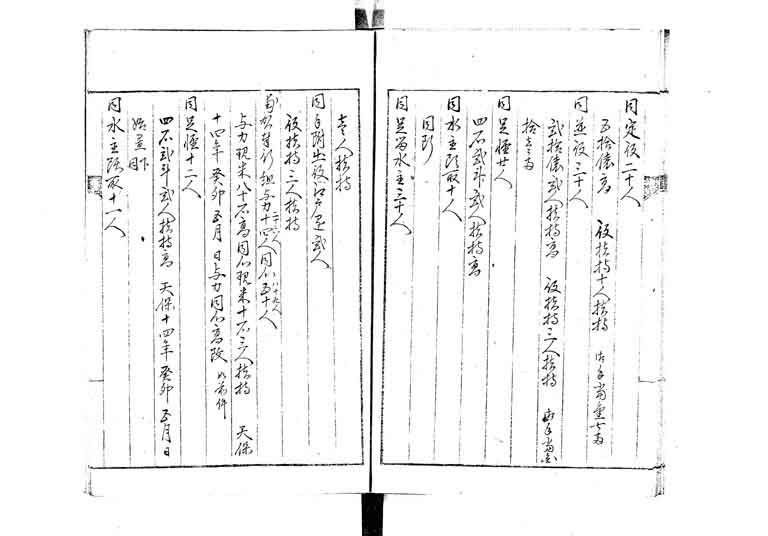 同定役二十人
五拾俵高 役扶持十人扶持 御手当金七両
同並役三十人
弐拾俵弐人扶持高 役扶持三人扶持 御手当金
拾壱両
同足軽廿人
四石弐斗弐人扶持高
同水主頭取十人
同断
同足留水主三十人
壱人扶持
同手附出役江戸足弐人
役扶持三人扶持
組与力十四人同心五十人
与力現米八十石高同心現米十石三人扶持 天保
十四年癸卯五月日与力同心高改如前件
同足軽十二人
四石弐斗弐人扶持高 天保十四年癸卯五月日
同水主頭取十一人